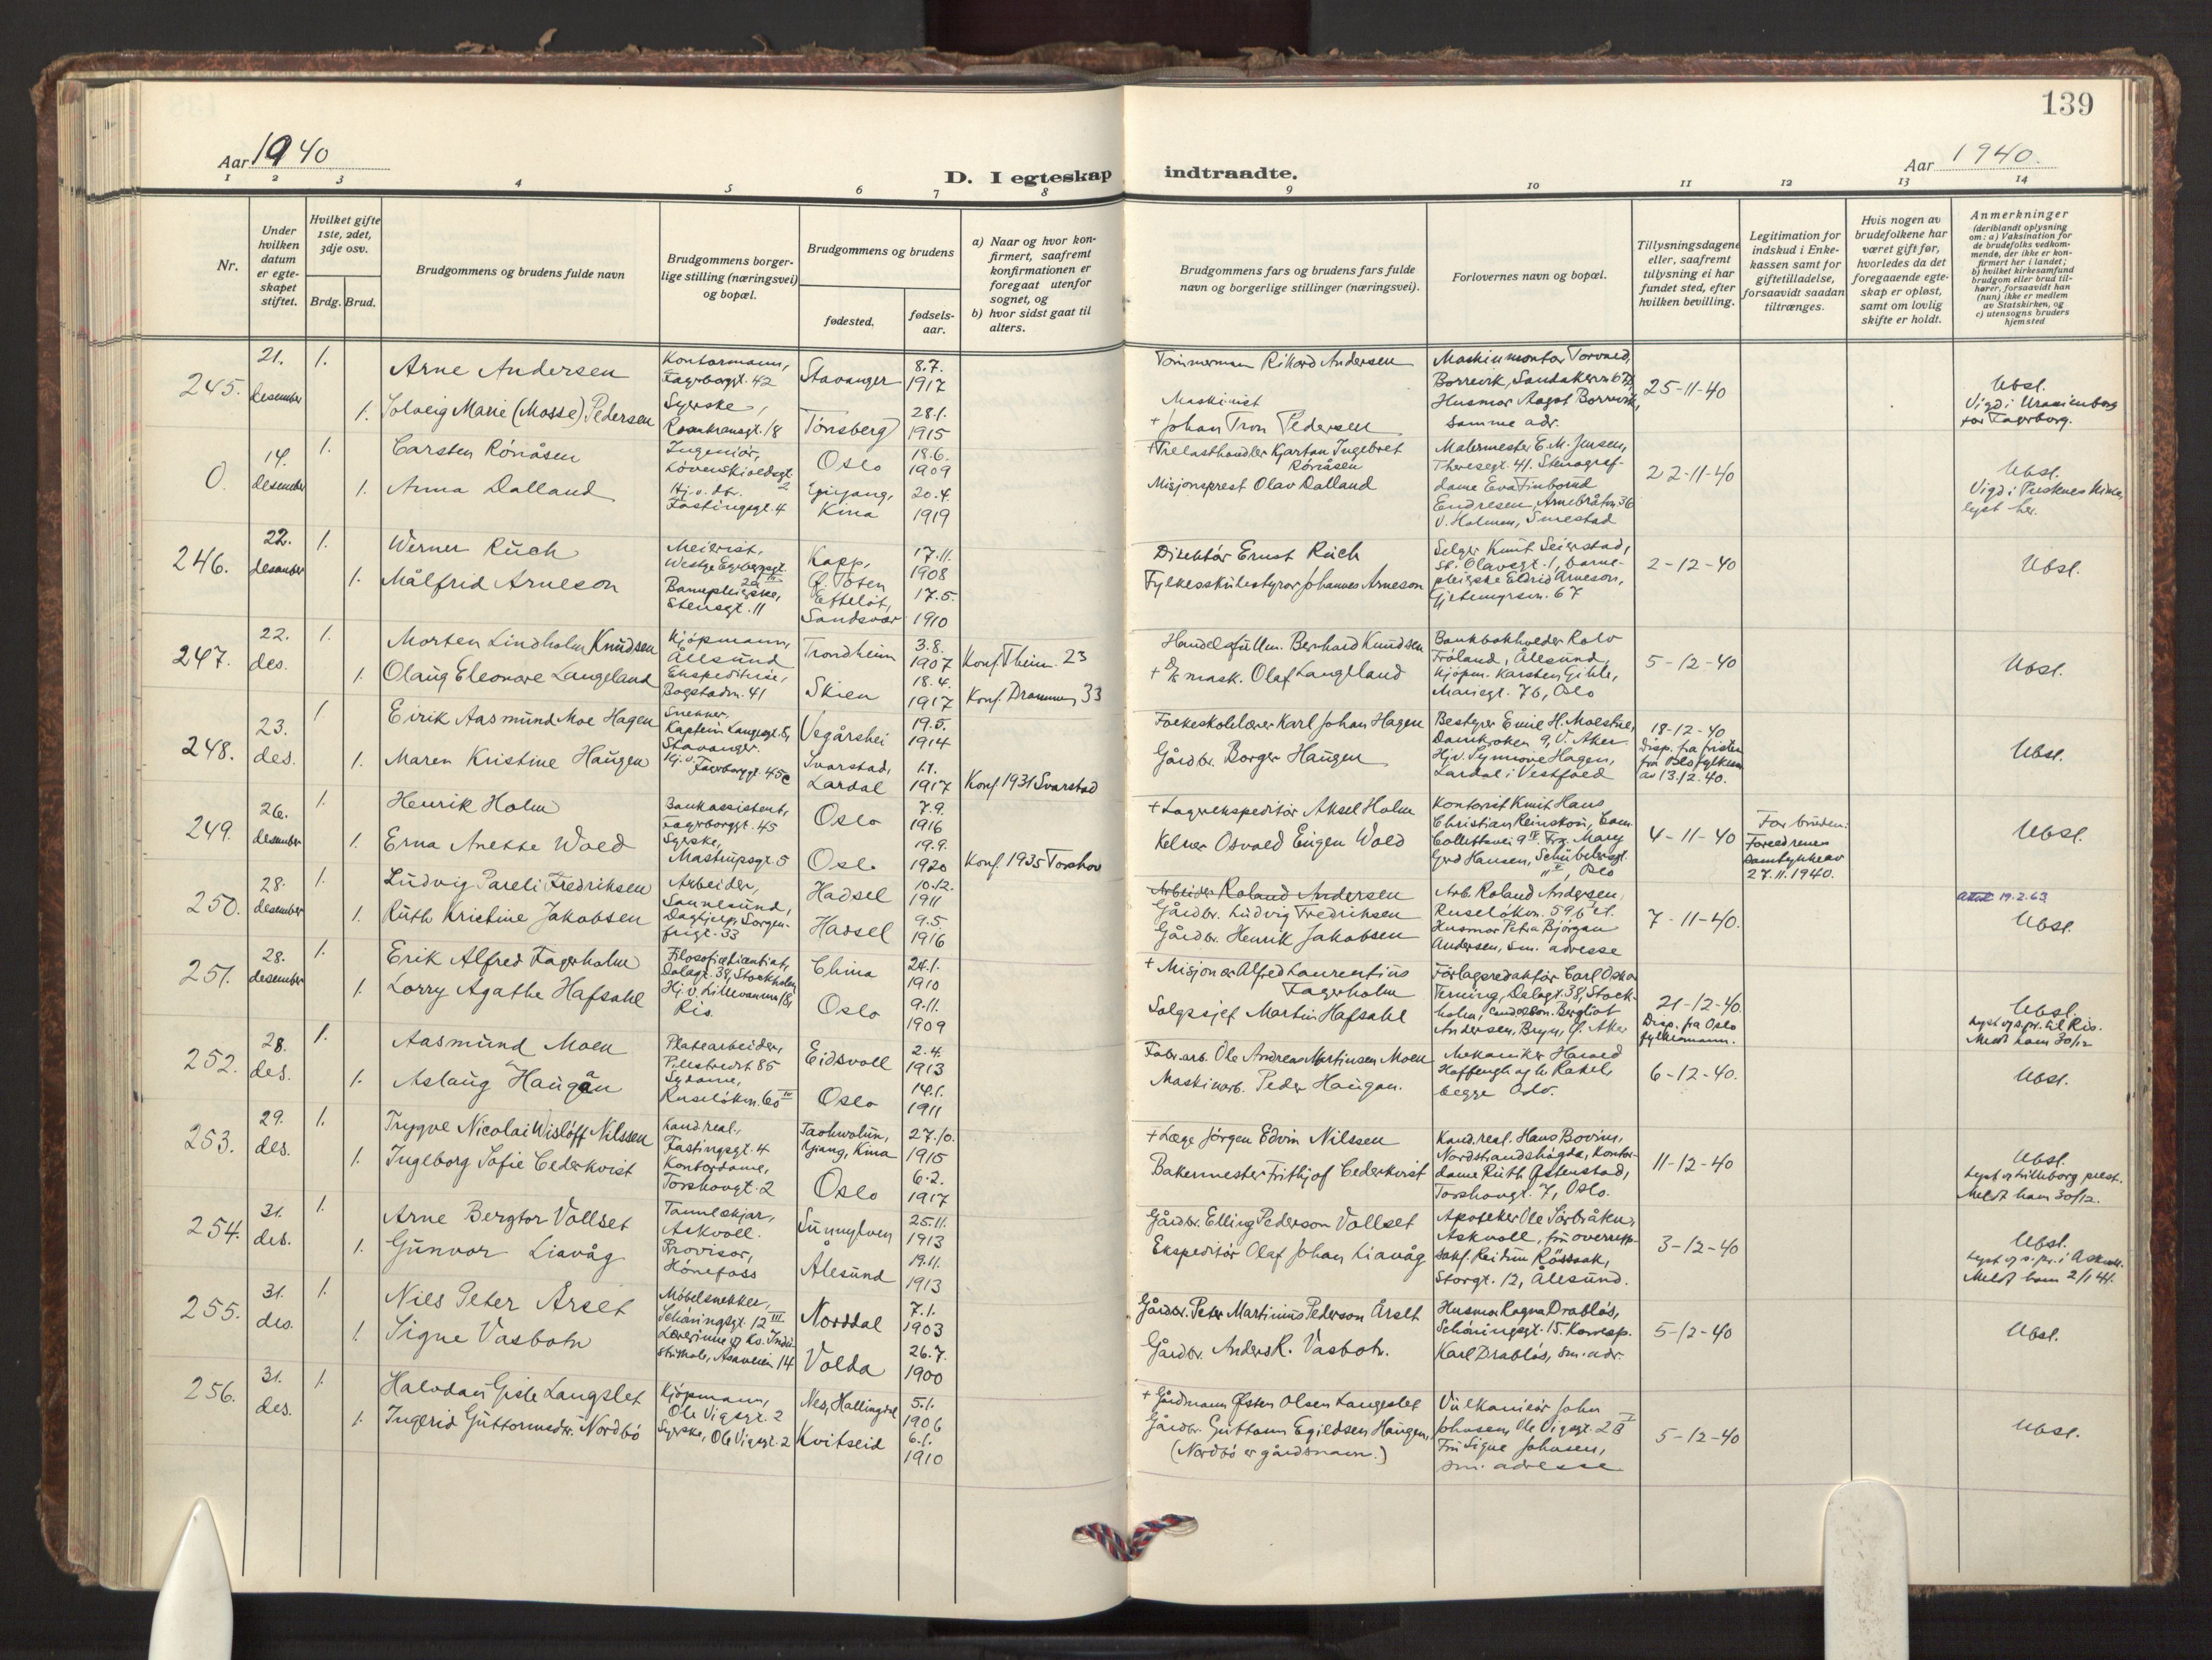 139
Aar 1940
Aar 1940.
D. I egteskap indtraadte.
1 2 3 4 5 6 7 8 9 10 11 12 13 14
Nr.
Under hvilken datum er egteskapet stiftet.
Hvilket gifte 1ste, 2det, 3dje osv.
Brdg. Brud.
Brudgommens og brudens fulde navn
Brudgommens borgerlige stilling (næringsvei) og bopæl.
Brudgommens og brudens
fødested.
fødselsaar.
a) Naar og hvor konfirmert, saafremt konfirmationen er foregaat utenfor sognet, og
b) hvor sidst gaat til alters.
Brudgommens fars og brudens fars fulde navn og borgerlige stillinger (næringsvei).
Forlovernes navn og bopæl.
Tillysningsdagene eller, saafremt tillysning ei har fundet sted, efter hvilken bevilling.
Legitimation for indskud i Enkekassen samt for giftetilladelse, forsaavidt saadan tiltrænges.
Hvis nogen av brudefolkene har været gift før, hvorledes da det foregaaende egteskap er opløst, samt om lovlig skifte er holdt.
Anmerkninger (deriblandt oplysning om: a) Vaksination for de brudefolks vedkommende, der ikke er konfirmert her i landet; b) hvilket kirkesamfund brudgom eller brud tilhører, forsaavidt han (hun) ikke er medlem av Statskirken, og c) utensogns bruders hjemsted
245. 21. desember 1. Arne Andersen Kontormann, Fagerborggt. 42 Stavanger 8.7. 1917 Tømmerman Rikard Andersen
1. Solveig Marie (Mosse) Pedersen Syerske, Rosenkransgt. 18 Tønsberg 28.1. 1915 Maskinist + Johan Tron Pedersen
Maskinmontør Torvald Borrevik, Sandakervn 67, Husmor Aagot Borrevik, samme adr. 25-11-40 Ubsl. Vigd i Uranienborg for Fagerborg.
0. 14. desember 1. Carsten Rönåsen Ingeniør, Løvenskioldsgt. 2 Oslo 18.6. 1909 + Trelasthandler Kjartan Ingebret Rönåsen
1. Anna Dalland Hj. v. dr. Fastingsgt. 4 Kina 20.4. 1919 Misjonsprest Olav Dalland
Malermester E. M. Jensen, Theresegt. 41. Stenografdame Eva Endresen, V. Holmen, Smestad 22-11-40 Ubsl. lyst her.
246. 22. desember 1. Werner Ruch Meierist, Kapp, Ø. Toten 17.11. 1908 Direktør Ernst Ruch
1. Målfrid Arneson Barnepleierske, Stensgt. 11 Efteløt, Sandsvær 17.5. 1910 Fylkesskulestyrar Johannes Arneson
Selger Knut Seierstad, St. Olavsgt. 1, barnepleierske Eldrid Arneson, Gjetemyrsvn. 67 2-12-40 Ubsl.
247. 22. des. 1. Morten Lindholm Knudsen Kjöpmann, Ålesund Trondheim 3.8. 1907 Konf. Theim. 23 Handelsfullm. Bernhard Knudsen
1. Olaug Eleonore Langeland Ekspeditrise, Bogstadvn. 41 Skien 18.4. 1917 Konf. Drammen 33 + mask. Olaf Langeland
Bankbokholder Rolv Fröland, Ålesund, Kjöpm. Karsten Gihle, Mariesgt. 76, Oslo 5-12-40 Ubsl.
248. 23. des. 1 Eirik Aasmund Moe Hagen Snekker, Kaptein Langesgt. 8, Stavanger. Vegårshei 19.5. 1914 Folkeskolelærer Karl Johan Hagen
1. Maren Kristine Haugen Hj. v. Fagerborggt. 45c Svarstad, Lardal 1.1. 1917 Konf 1931 Svarstad Gårdbr. Borger Haugen
Bestyrer Emil H. Moestue, Damkroken 9, V. Aker Hj. v. Synnøve Hagen, Lardal i Vestfold 18-12-40 Disp. fra fristen fra Oslo fylkesm. av 13.12.40. Ubsl.
249. 26. desember 1. Henrik Holm Bankassistent, Fagerborggt. 45 Oslo 7.9. 1916 + Lagerekspeditör Aksel Holm
1. Erna Anette Wold Syerske, Mastrupsgt. 5 Oslo 19.9. 1920 Konf. 1935 Torshov Kelner Osvald Eugen Wold
Kontorist Knut Hans Christian Reinskou, Cam. Collettsvei 9 IV Frg. Mary Gerd Hansen, Schübelersgt. Oslo 4-11-40 For bruden: Foreldrenes samtykke av 27.11.1940. Ubsl.
250. 28. desember 1. Ludvig Pareli Fredriksen Arbeider, Sannesund, Hadsel 10.12. 1911 Arbeider Roland Andersen Gårdbr. Ludvig Fredriksen
1. Ruth Kristine Jakobsen Daghjelp, Sorgenfrigt. 33 Hadsel 9.5. 1916 Gårdbr. Henrik Jakobsen
Arb. Roland Andersen, Ruselökvn. 59, 6 et. Husmor Petra Bjørgan Andersen, sm. adresse 7-11-40. Attest 19.2.63 Ubsl.
251. 28. desember 1. Erik Alfred Fagerholm Filosofielicentiat, Dalagt. 38, Stockholm China 24.1. 1910 + Misjonær Alfred Laurentius Fagerholm
1. Lorry Agathe Hafsahl Hj. v. Lillevannsv. 18, Ris. Oslo 9.11. 1909 Salgssjef Martin Hafsahl
Förlagsredaktör Carl Oskar Terning, Dalagt. 38, Stockholm, Bergliot Andersen, Bryn, Ø. Aker 21-12-40. Disp. fra Oslo fylkesmann. Ubsl. Lyst og s.pr. til Ris. Meldt ham 30/12
252. 28. des. 1. Aasmund Moen Platearbeider, Pilestredet 85 Eidsvoll 2.4. 1913 Fabr. arb. Ole Andreas Martinsen Moen
1. Aslaug Haugan Sydame, Ruselökvn. 60 IV Oslo 14.1. 1911 Maskinarb. Peder Haugan.
Mekaniker Harald Hoffengh og h. Rakel, begge Oslo. 6-12-40. Ubsl.
253. 29. des. 1. Trygve Nicolai Wislöff Nilssen Kand. real., Fastingsgt. 4 Taohwalun, Kina 27.10. 1915 + Læge Jörgen Edvin Nilssen
1. Ingeborg Sofie Cederkvist Kontordame, Torshovgt. 2 Oslo 6.2. 1917 Bakermester Frithjof Cederkvist
Kand. real. Hans Bovim, Nordstrandshögda, Kontordame Ruth Östenstad, Torshovgt. 7, Oslo. 11-12-40 Ubsl. Lyst og s. Lilleborg prest. Meldt ham 30/12.
254. 31. des. 1. Arne Bergtor Vollset Tannlækjar, Askvoll. Sunnylven 25.11. 1913 Gårdbr. Elling Pederson Vollset
1. Gunvor Liavåg Provisor, Hönefoss Ålesund 19.11. 1913 Ekspeditör Olaf Johan Liavåg
Apoteker Ole Sörbråten, Askvoll, fru overrettssakf. Reidun Rössaak, Storgt. 12, Ålesund. 3-12-40 Ubsl. Lyst og s. pr. i Askvoll. Meldt ham 2/1 41.
255. 31. des. 1. Nils Peter Årset Möbelsnekker, Schöningsgt. 12 III Norddal 7.1. 1903 Gårdbr. Peter Martinus Pederson Årset
1. Signe Vasbotn Lærerinne v. Ks. Industriskole, Asaveien 14 Volda 26.7. 1900 Gårdbr. Anders R. Vasbotn.
Husmor Ragna Drablös, Schöningsgt. 15. Korresp. Karl Drablös, sm. adr. 5-12-40 Ubsl.
256. 31. des. 1. Halvdan Gisle Langslet Kjöpmann, Ole Vigsgt. 2 Nes, Hallingdal 5.1. 1906 + Gårdmann Østen Olsen Langeslet
1. Ingerid Guttormsdtr. Nordbö Syerske, Ole Vigsgt. 2 Kvitseid 6.1. 1910 Gårdbr. Guttorm Egildsen Haugen, (Nordbö er gårdsnavn.)
Vulkanisör John Johnsen, Ole Vigsgt. 2 B Fru Signe Johnsen, sm. adresse 5-12-40 Ubsl.